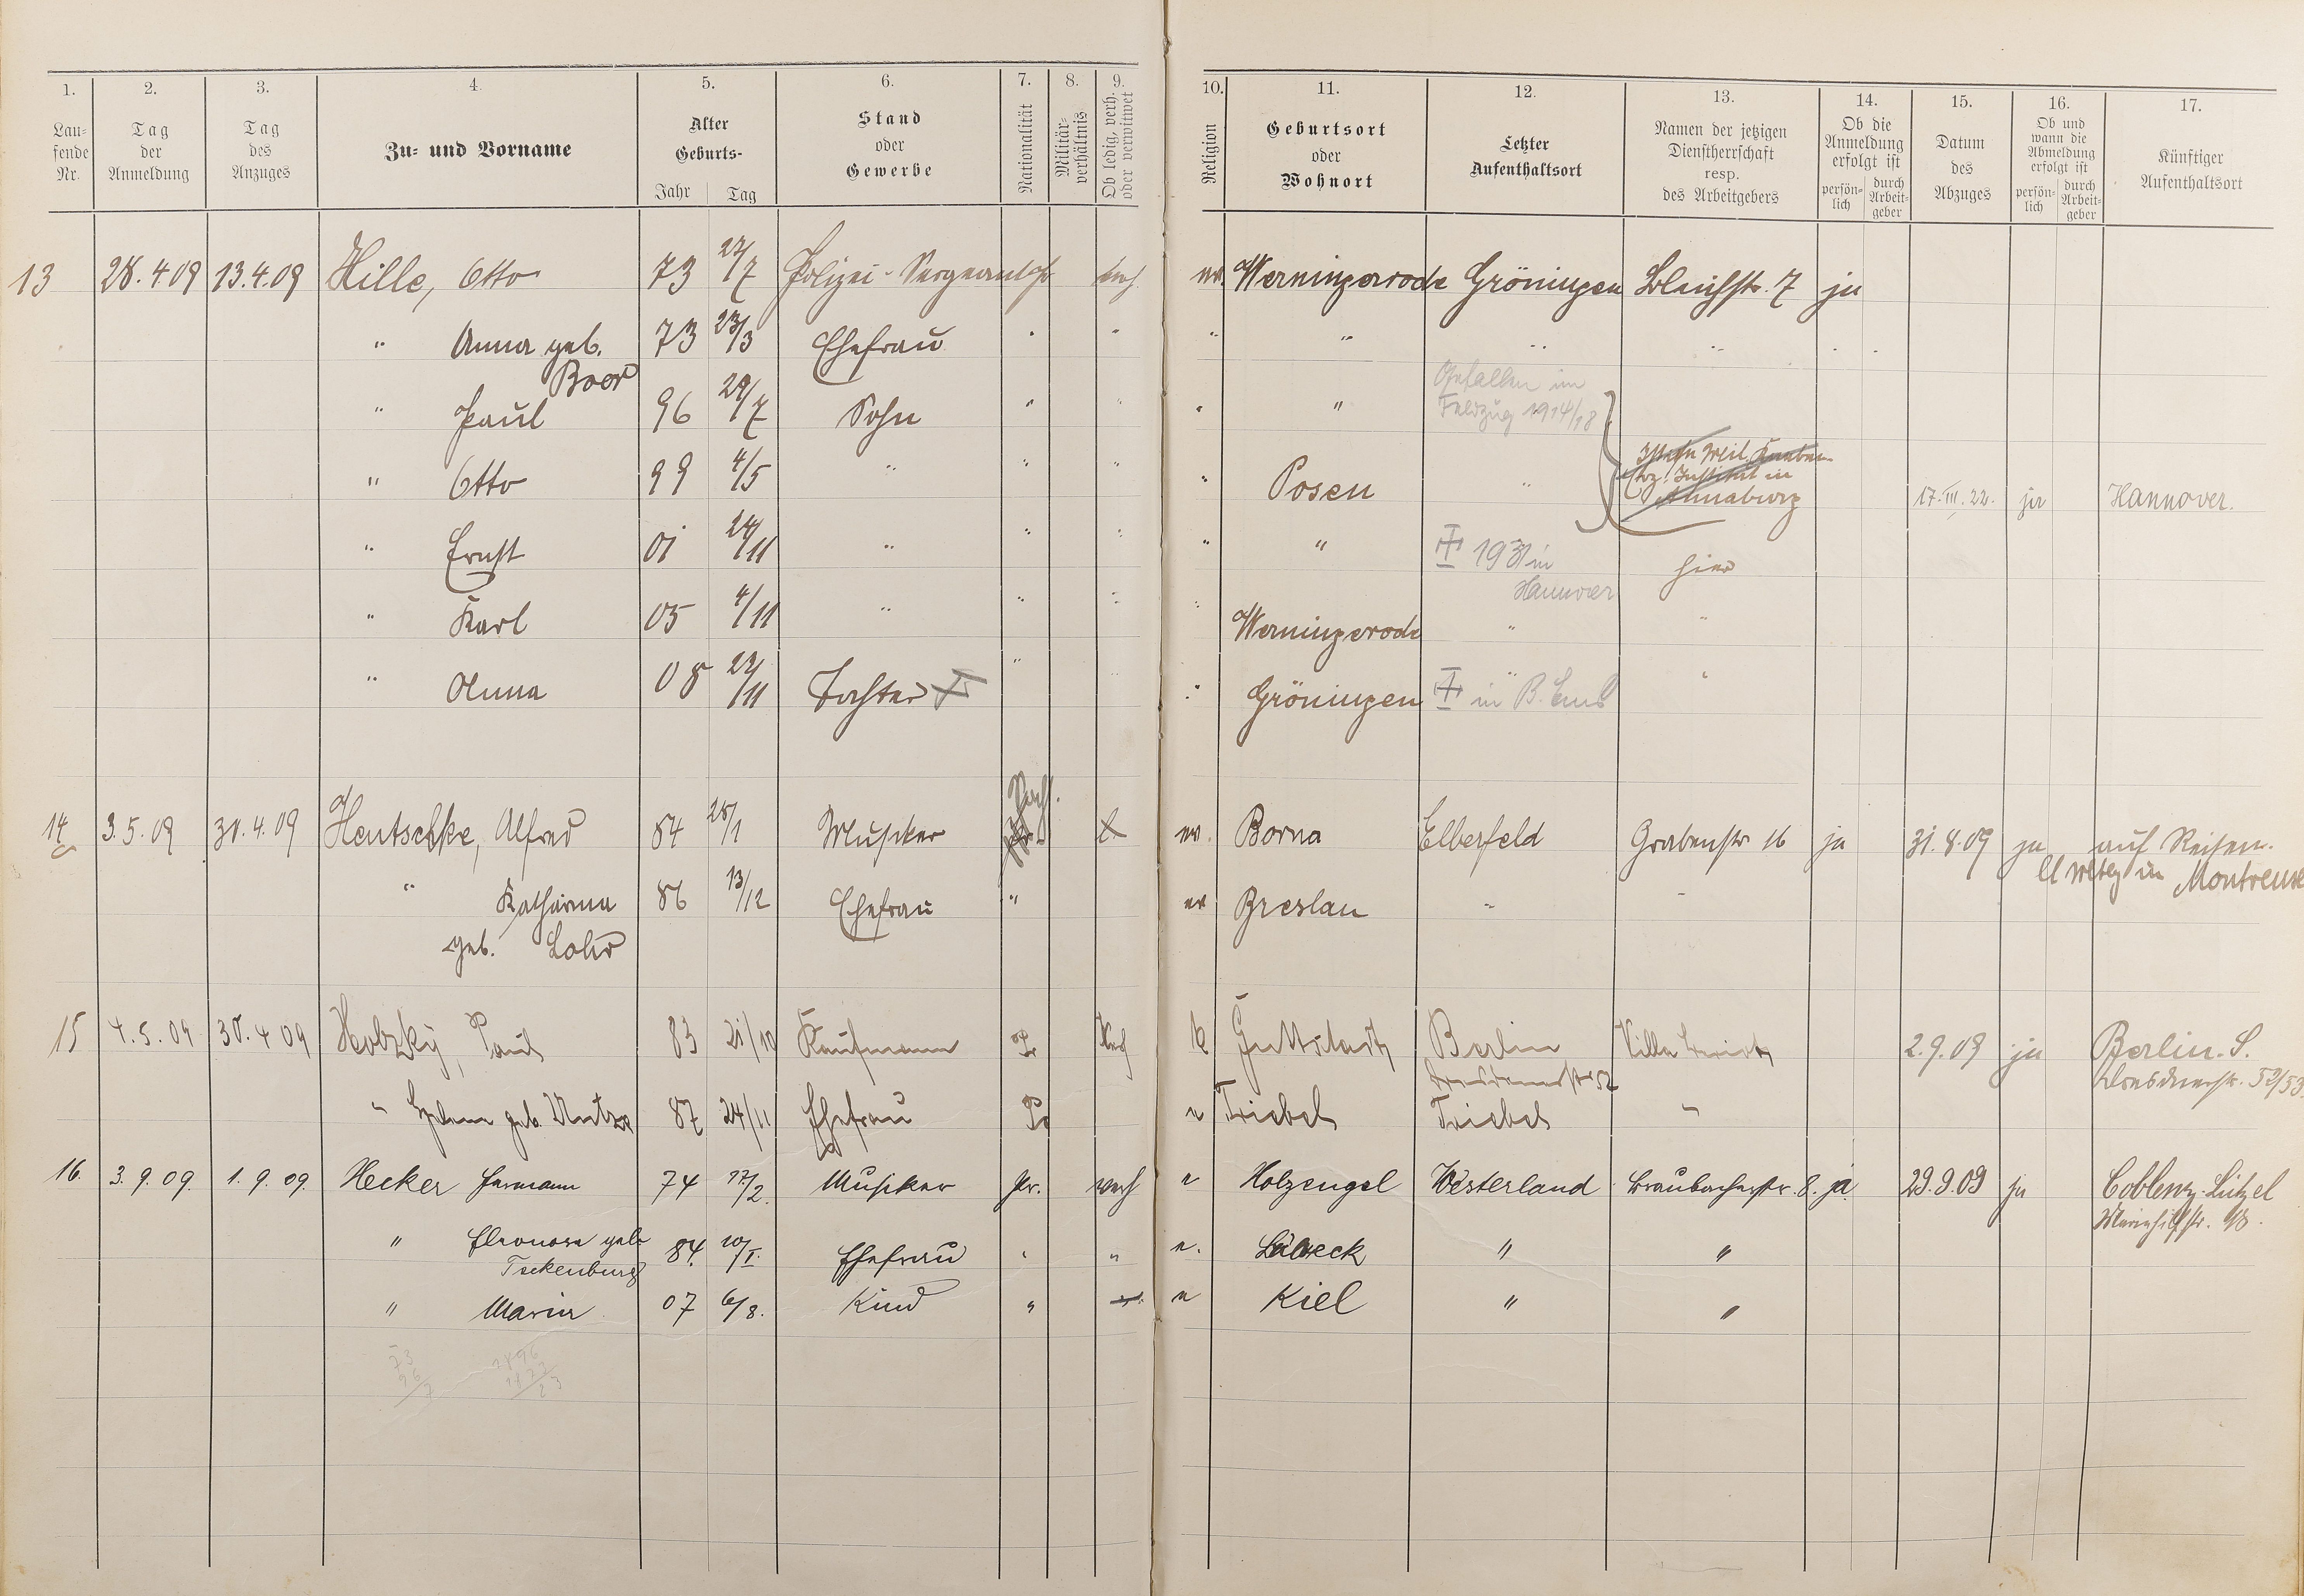 1. 2. 3. 4. 5. 6. 7. 8. 9. 10. 11. 12. 13. 14. 15. 16. 17.
Lau-
fende
Nr.
Tag
der
Anmeldung
Tag
des
Anzuges
Zu- und Vorname
Alter
Geburts-
Jahr Tag
Stand
oder
Gewerbe
Nationalität
Militär-
verhältnis
Ob ledig, verh.
oder verwitwet
Religion
Geburtsort
oder
Wohnort
Letzter
Aufenthaltsort
Namen der jetzigen
Dienstherrschaft
resp.
des Arbeitgebers
Ob die
Anmeldung
erfolgt ist
persön-
lich
durch
Arbeit-
geber
Datum
des
Abzuges
Ob und
wann die
Abmeldung
erfolgt ist
persön-
lich
durch
Arbeit-
geber
Künftiger
Aufenthaltsort
13 28.4 09 13.4.09 Hille, Otto 73 27/7 Polizei-Sergeant pr verh. ev. Wernigerode Gröningen Bleichstr. 7 ja
" Anna geb. 73 23/3 Ehefrau " " " " " "
Boer
Gefallen im
Feldzug 1914/18
" Paul 96 29/7 Sohn " " " "
" Otto 99 4/5 " " " " Posen " 17.III.22. ja Hannover.
Institut in
Annaburg
" Ernst 01 24/11 " " " " " 1931 in hier
Hannover
" Karl 05 4/11 " " " " Wernigerode " "
" Anna 08 22/11 Tochter " " Gröningen " in B. Ems "
14 3.5.09 30.4.09 Hentschke, Alfred 84 25/1 Musiker ev. Borna Elberfeld Grabenstr 16 ja 31.8.09 ja auf Reisen.
in Montreux
" Katharina 86 13/12 Ehefrau " ev Breslau "
geb. Lohr
15 4.5.09 30.4 09 Paul 83 21/10 Kaufmann Pr verh k Guttstadt Berlin Villa 2.9.09 ja Berlin. S.
Dresdnerstr. 52/53.
" geb. 87 24/11 Ehefrau Pr e Triebel Triebel "
16. 3.9.09. 1.9.09. Hecker Hermann 74 17/2. Musiker pr. verh e Holzengel Westerland Braubacherstr. 8. ja 29.9.09 ja Coblenz-Lützel
" Eleonore geb 84. 10/I. Ehefrau " " e. Lübeck " "
Teckenburg
" Maria 07 6/8. Kind " e Kiel " "
73
96
1896